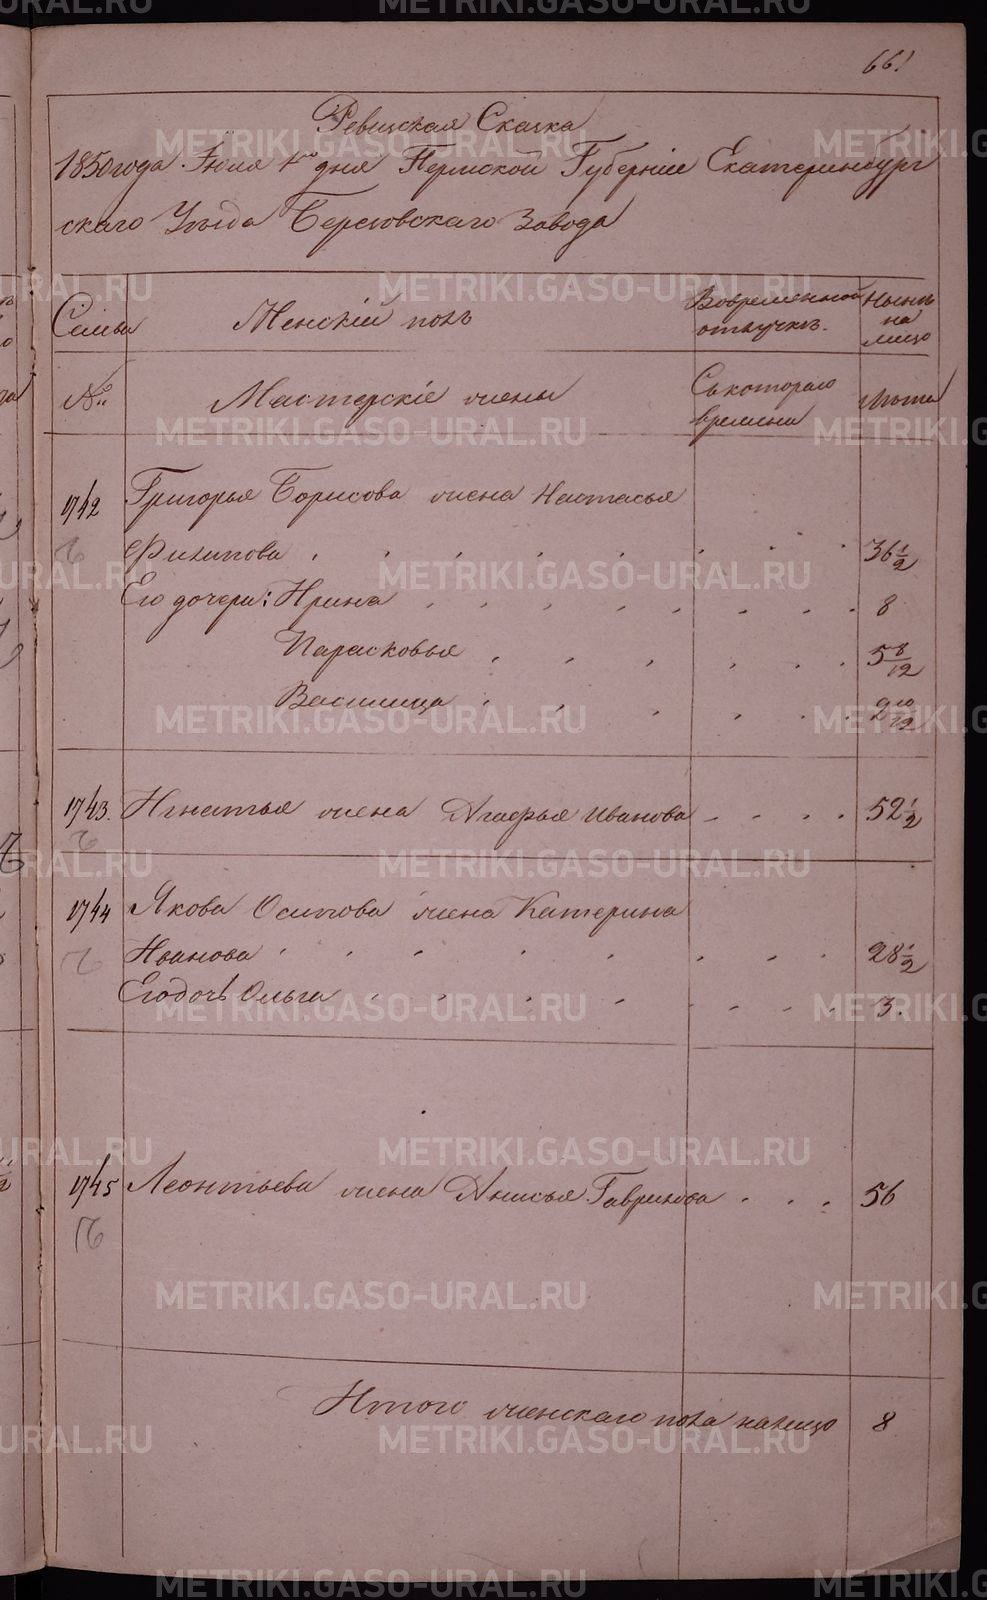 661
Ревизская Сказка
1850 года Июля 1го дня Пермской Губернiи Екатеринбург
скаго Уѣзда Березовскаго Завода
Семьи
Женскiй полъ
Вовременной
отлучкѣ.
Нынѣ
на
лицо
№
Мастерскiе жены
Съ котораго
времени
Лѣта
1742
Григорья Борисова жена Настасья
Филипова . . . . . . . 36 1/2
Его дочери: Ирина . . . . . . . . 8
Парасковья . . . . . . 5 8/12
Василиса . . . . . . 2 10/12
1743. Игнатья жена Агафья Иванова . . . . 52 1/2
1744 Якова Осипова жена Катерина
Иванова . . . . . . . . 28 1/2
Его дочь Ольга . . . . . . . . 3.
1745 Леонтьева жена Анисья Гаврилова . . . 56
Итого женскаго пола налицо 8
METRIKI.GASO-URAL.RU